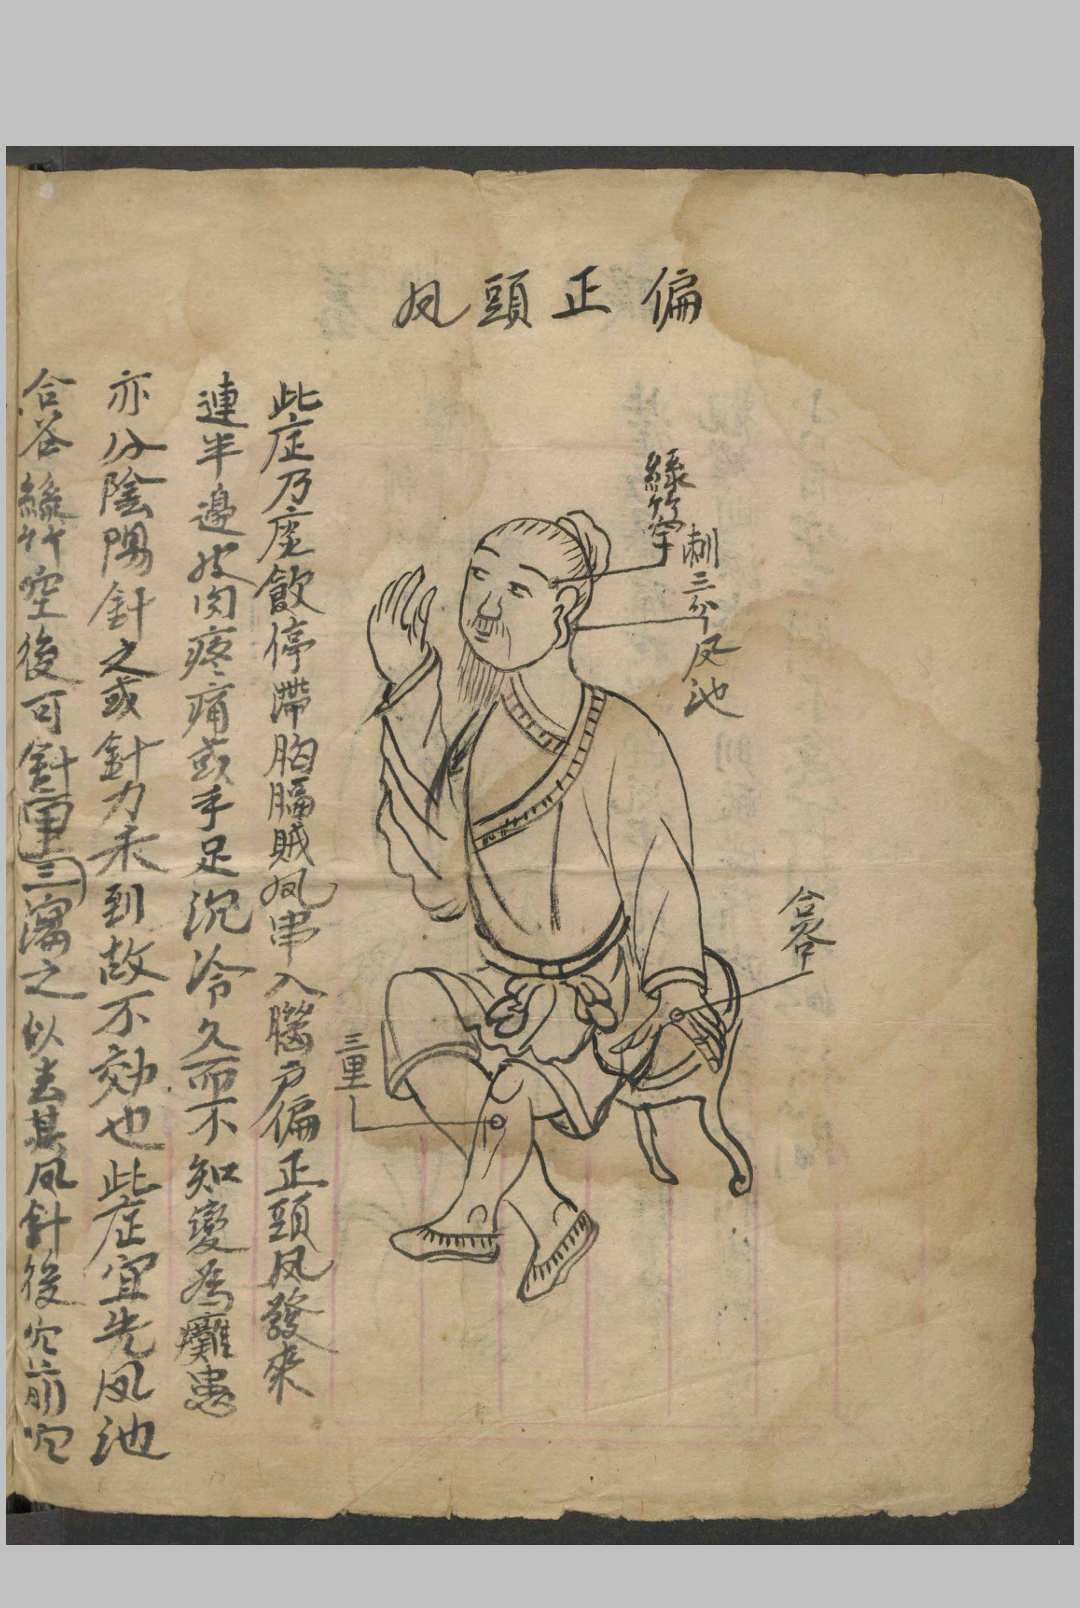 偏正頭风
絲竹空
刺三分
风池
合谷
三里
此症乃座飲停滯胸膈賊风串入腦户偏正頭风發來
連半邊皮肉疼痛或手足沉冷久而不知變為癱患
亦分陰陽針之或針力未到故不効也此症宜先风池
合谷絲竹空後可針三里瀉之以去其风針後穴前